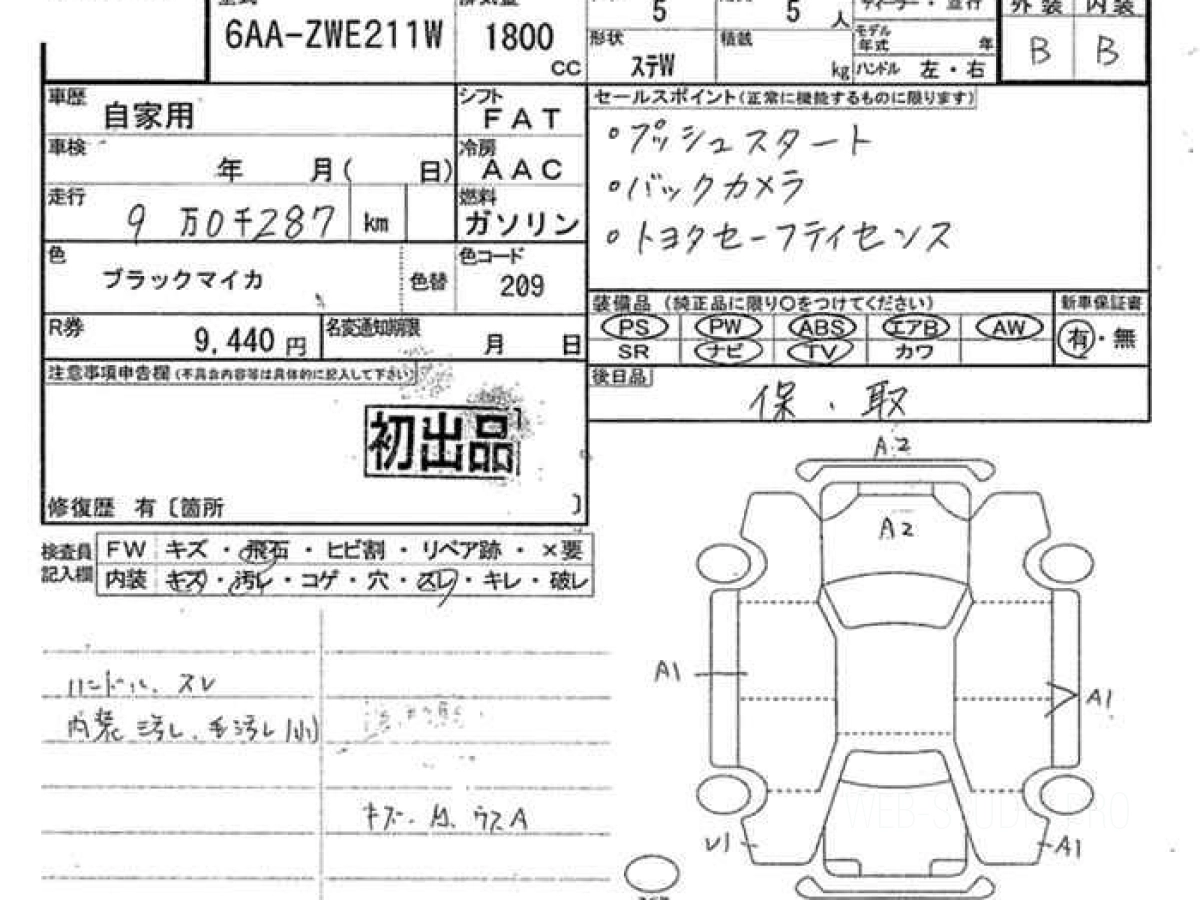 6AA-ZWE211W
1800 CC
5
5 人
形状 ステW
積載 kg
モデル年式 年
ハンドル 左・右
外装 内装
B B
車歴 自家用
シフト FAT
車検 年 月( 日)
冷房 AAC
走行 9万0千287 km
燃料 ガソリン
色 ブラックマイカ 色替
色コード 209
R券 9,440 円
名変通知期限 月 日
注意事項申告欄(不具合内容等は具体的に記入して下さい)
初出品
修復歴 有〔箇所 〕
セールスポイント(正常に機能するものに限ります)
・プッシュスタート
・バックカメラ
・トヨタセーフティセンス
装備品(純正品に限り○をつけてください)
PS PW ABS エアB AW
SR ナビ TV カワ
新車保証書
有・無
後日品
保・取
検査員記入欄
FW キズ・飛石・ヒビ割・リペア跡・×要
内装 キズ・汚レ・コゲ・穴・スレ・キレ・破レ
ハンドル、スレ
内装汚レ、
A2
A2
A1
A1
A1
WEB-STUDIO.PRO